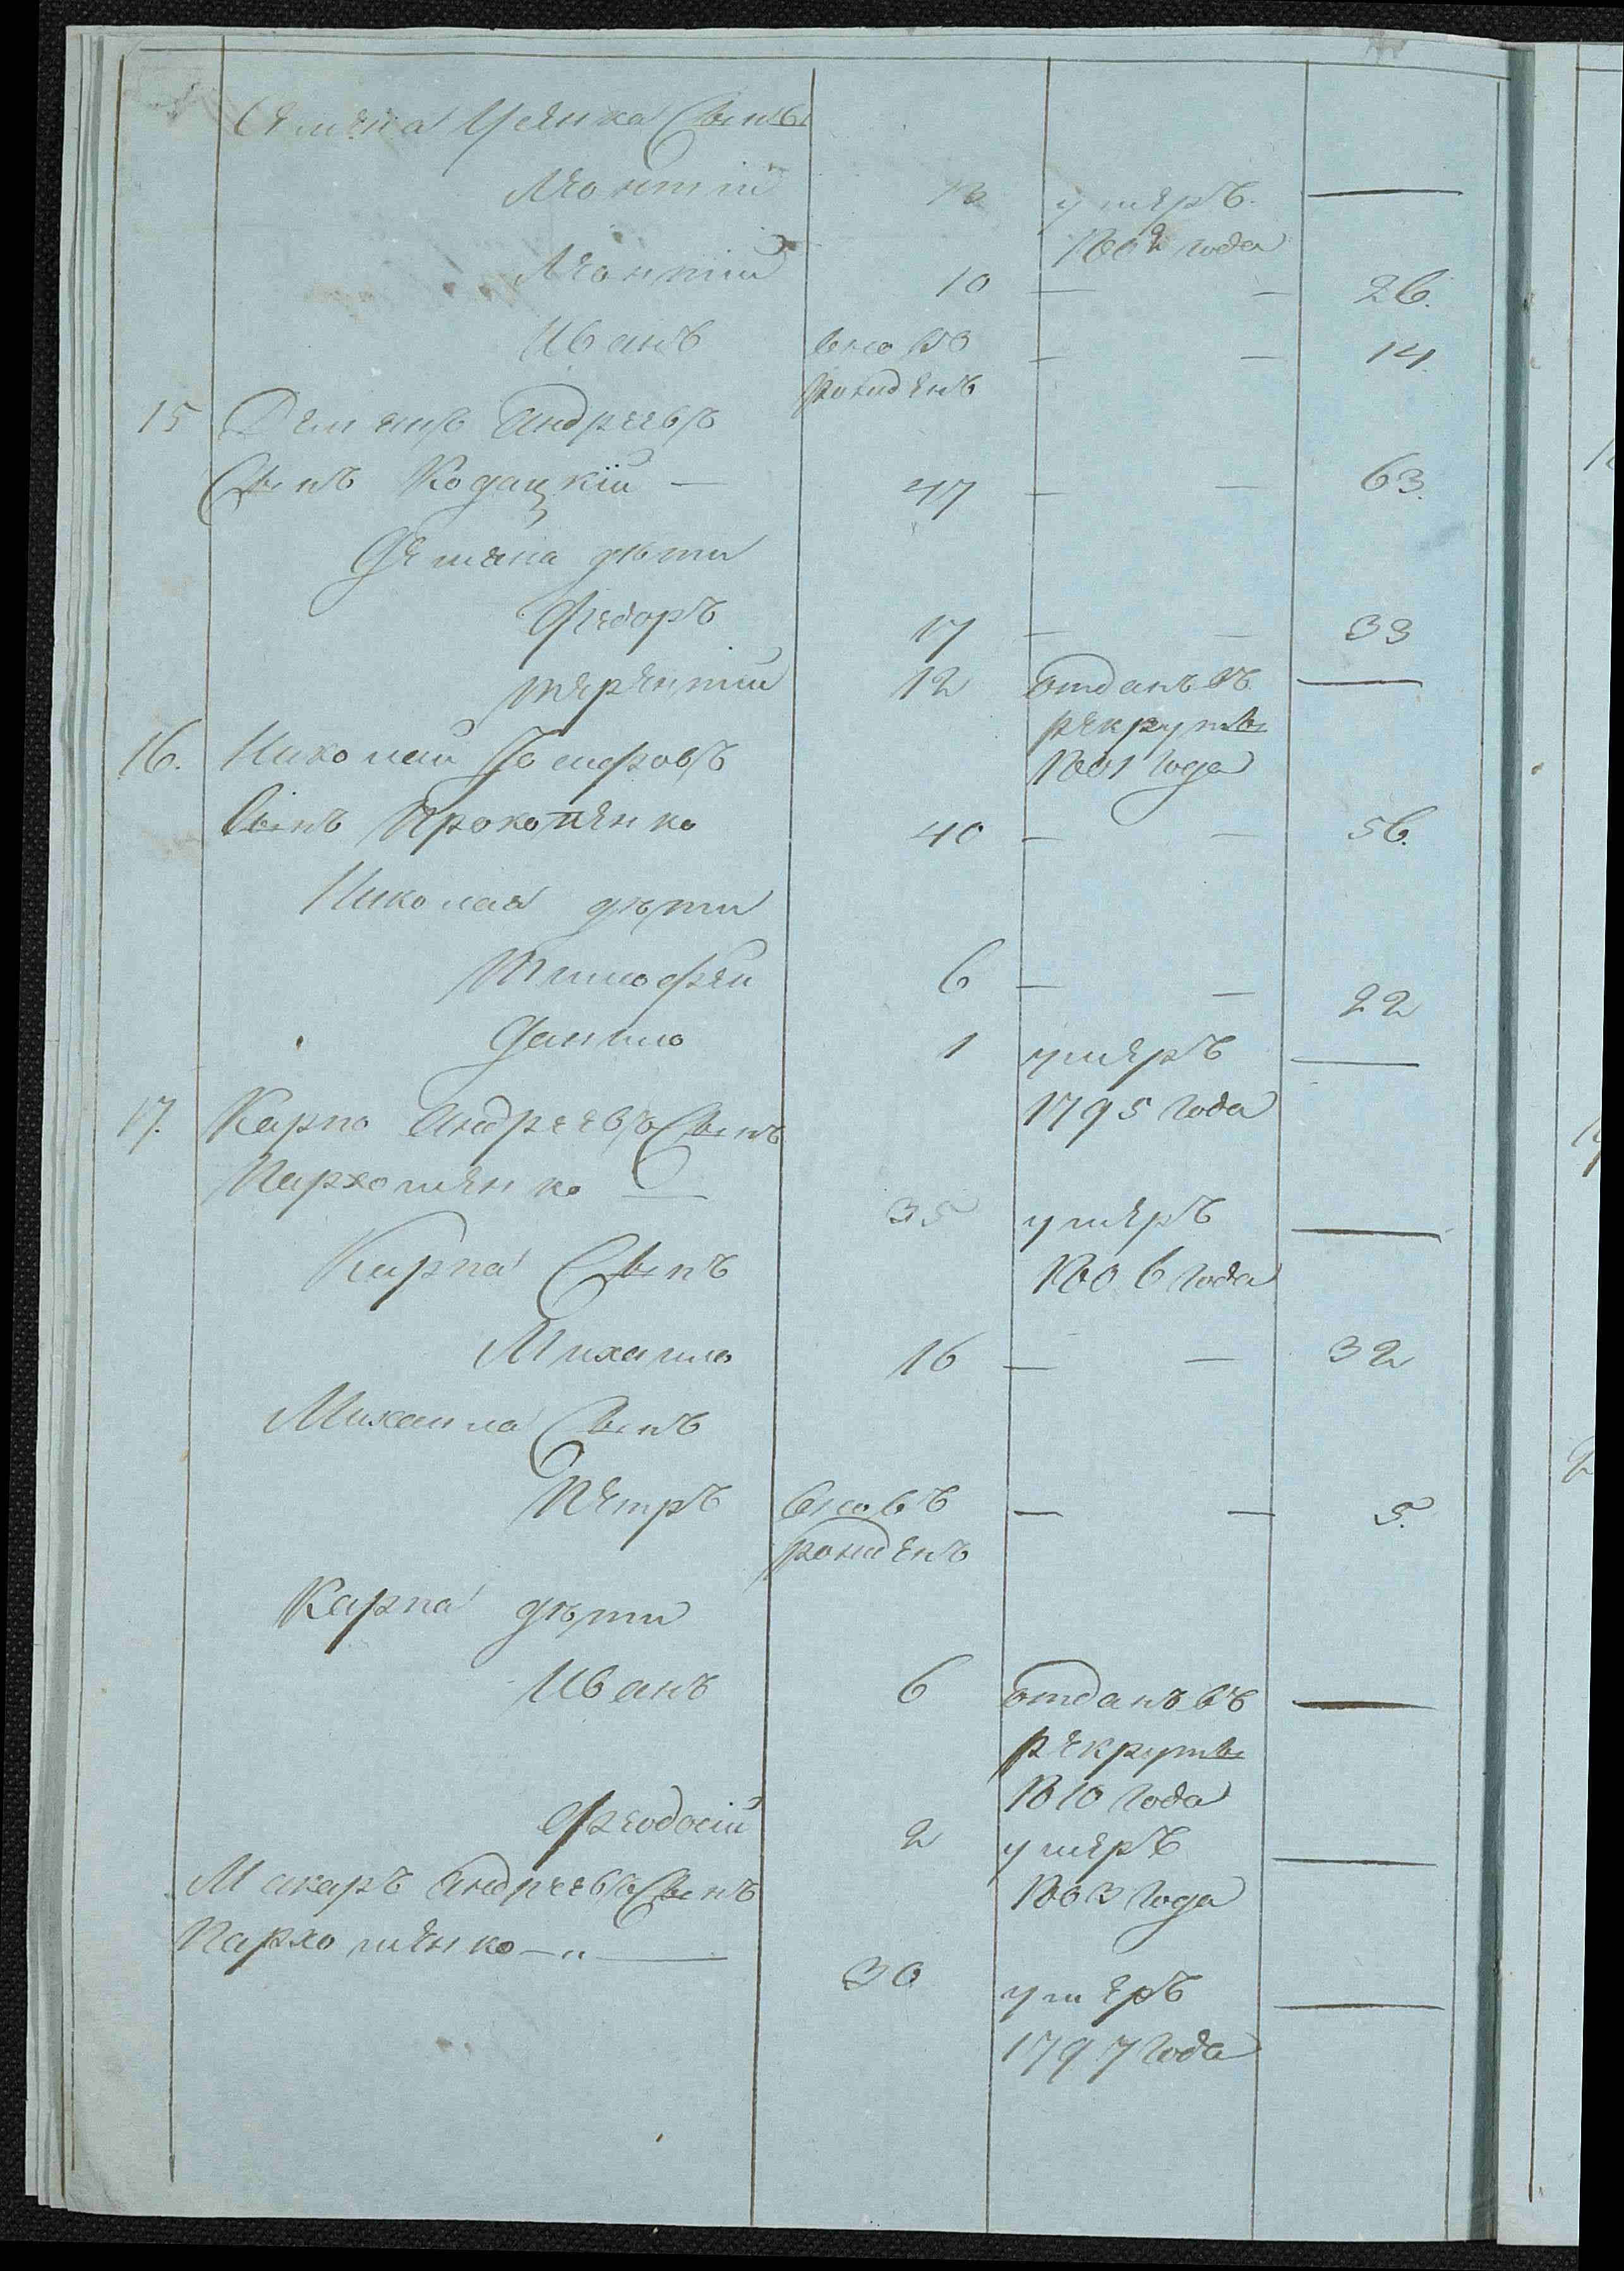 Семена Усенка Сыны
Леонтій 13 умеръ
1802 года
Леонтій 10 — — 26.
Иванъ вновъ — — 14
рожденъ
15 Демьянъ Андреевъ
Сынъ Кодацкій — 47 — — 63.
Демяна дѣти
Федоръ 17 — — 33
терентій 12 отданъ въ
рекруты
16. Николай
1801 года
Сынъ Прокопенко 40 — — 56.
Николая дѣти
Тимофей 6 — — 22
Данило 1 умеръ
1795 года
17. Карпо Андреевъ Сынъ
Пархоменко — 35 умеръ
1806 года
Карпа Сынъ
Михаило 16 — — 32
Михаила Сынъ
Петръ вновъ — — 5.
рожденъ
Карпа дѣти
Иванъ 6 отданъ въ
рекруты
1810 года
Феодосій 2 умеръ
1803 года
Макаръ Андреевъ Сынъ
Пархоменко — 30 умеръ
1797 года